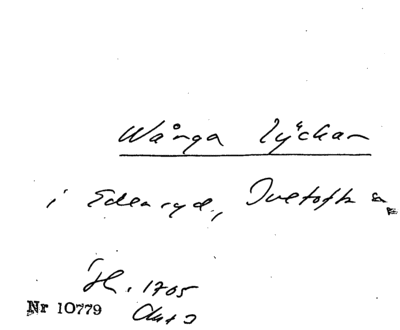 Wånga lyckan
i Edenryd, Ivetofta
H. 1705
Nr 10779